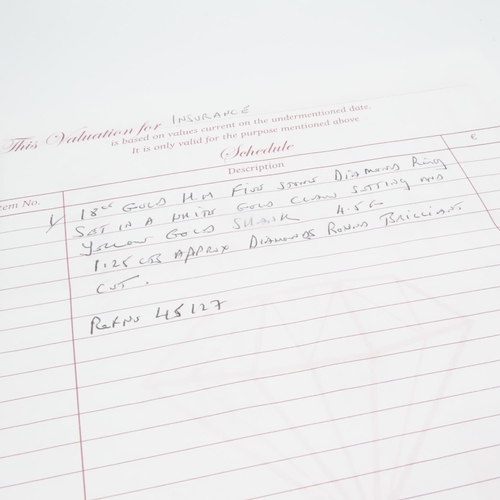 This Valuation for INSURANCE
is based on values current on the undermentioned date.
It is only valid for the purpose mentioned above
Schedule
Item No. Description £
1/ 18ct GOLD H.M FIVE STONE DIAMOND RING
SET IN A WHITE GOLD CLAW SETTING AND
YELLOW GOLD SHANK 4.5G
1.25 cts APPROX DIAMONDS ROUND BRILLIANT
CUT.
Ref No 45127